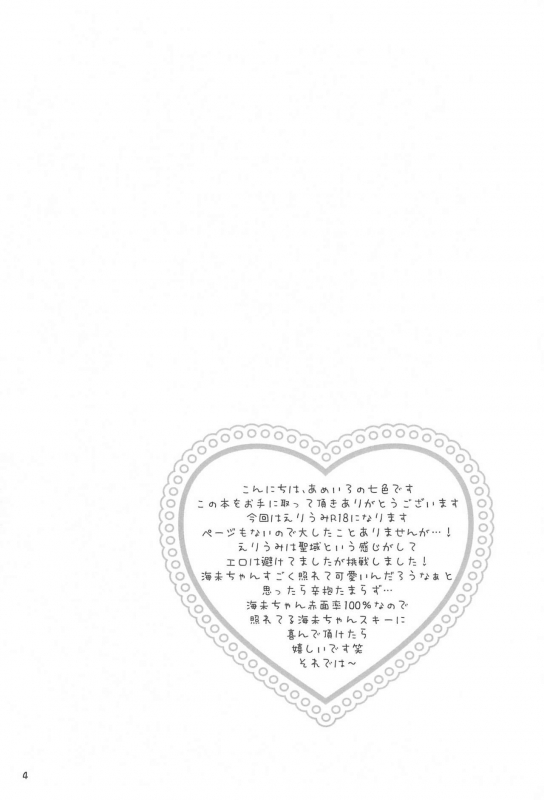 こんにちは、あめいろの七色です
この本をお手に取って頂きありがとうございます
今回はえりうみR18になります
ページもないので大したことありませんが…！
えりうみは聖域という感じがして
エロは避けてましたが挑戦しました！
海未ちゃんすごく照れて可愛いんだろうなぁと
思ったら辛抱たまらず…
海未ちゃん赤面率100%なので
照れてる海未ちゃんスキーに
喜んで頂けたら
嬉しいです笑
それでは～
4